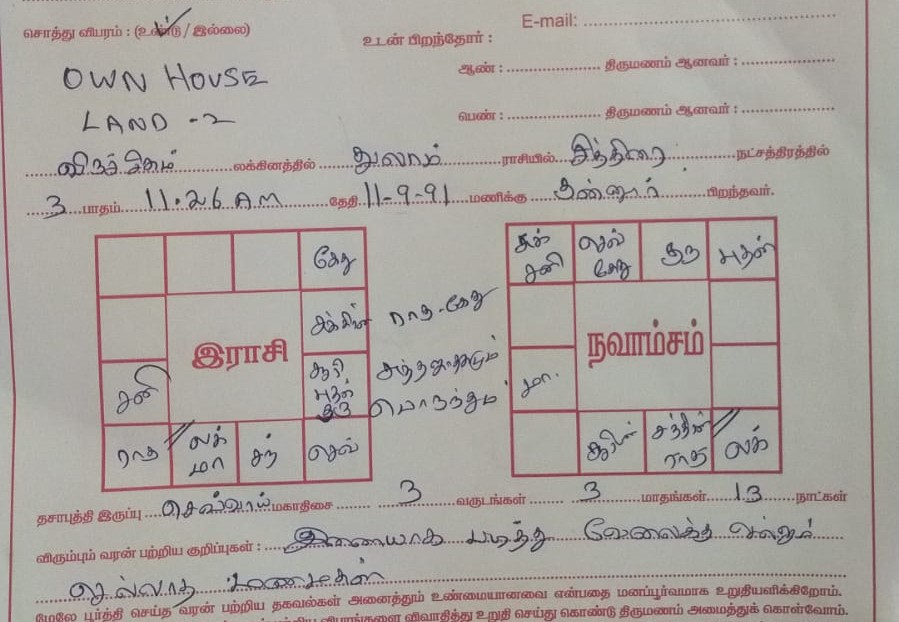 E-mail:
சொத்து விபரம் : (உண்டு / இல்லை)
உடன் பிறந்தோர் :
OWN HOUSE
ஆண் : திருமணம் ஆனவர் :
LAND - 2
பெண் : திருமணம் ஆனவர் :
விருச்சிகம் லக்கினத்தில் துலாம் ராசியில் சித்திரை நட்சத்திரத்தில்
3 பாதம் 11.26 AM தேதி 11-9-91 மணிக்கு பிறந்தவர்.
கேது
ராகு-கேது
இராசி
சனி
சூரி
புதன்
குரு
பொருந்தும்
ராகு
லக்
மா
சந்
செவ்
சுக்
சனி
செவ்
கேது
குரு
புதன்
நவாம்சம்
மா.
சூரியன்
சந்திரன்
ராகு
லக்
தசாபுத்தி இருப்பு செவ்வாய் மகாதிசை 3 வருடங்கள் 3 மாதங்கள் 13 நாட்கள்
விரும்பும் வரன் பற்றிய குறிப்புகள் : இணையாக படித்து வேலைக்கு செல்லும்
செல்லாத மணமகள்
மேலே பூர்த்தி செய்த வரன் பற்றிய தகவல்கள் அனைத்தும் உண்மையானவை என்பதை மனப்பூர்வமாக உறுதியளிக்கிறோம்.
விபரங்களை விவாதித்து உறுதி செய்து கொண்டு திருமணம் அமைத்துக் கொள்வோம்.